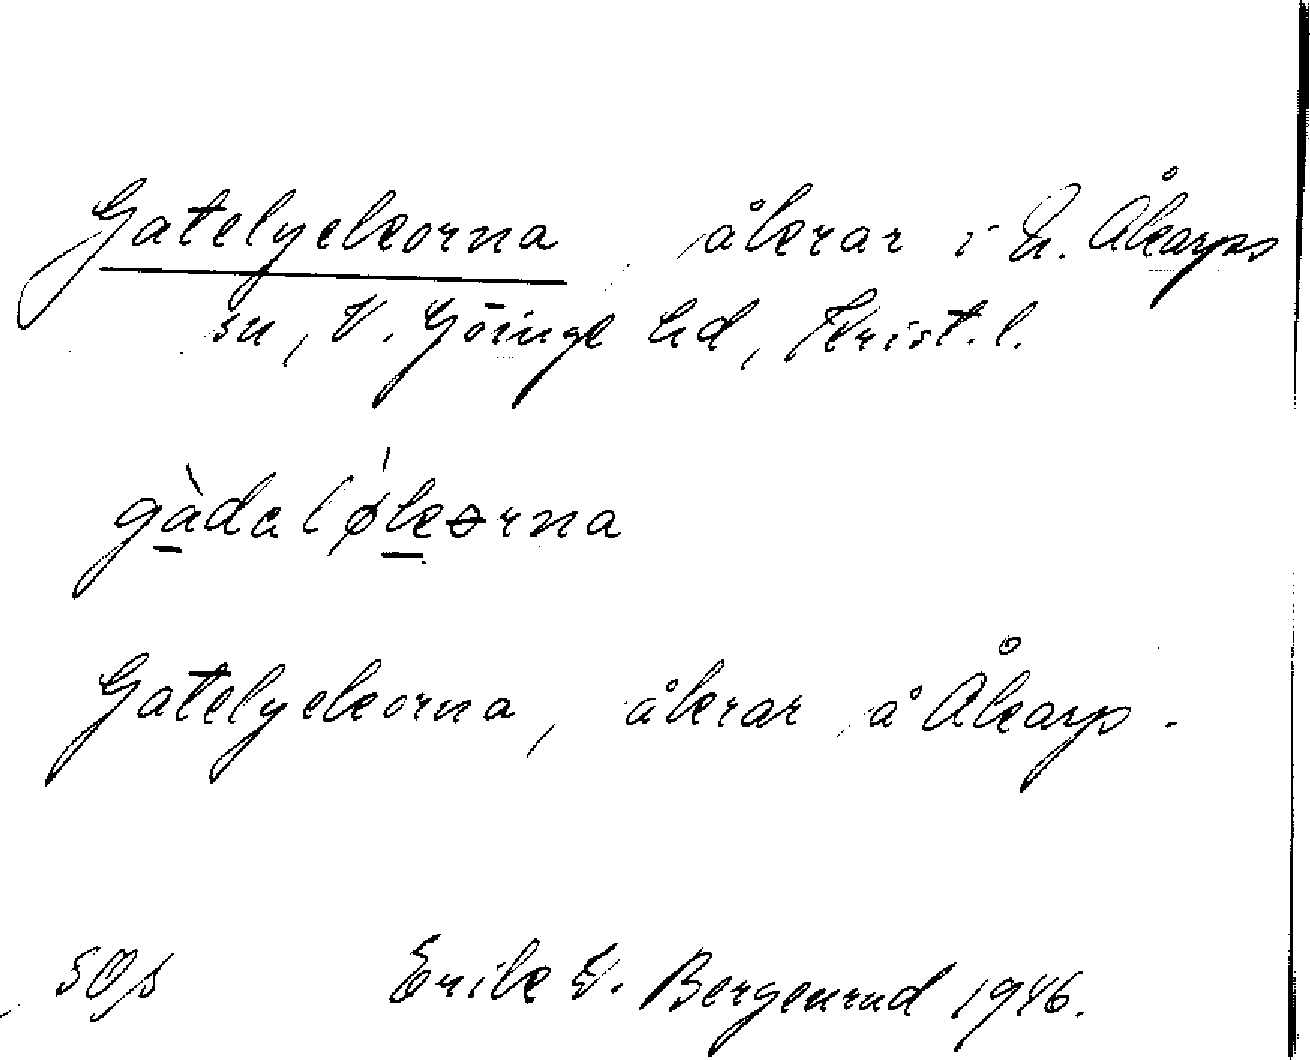 Gatelyckorna åkrar i N. Åkarps
sn, V. Göinge hd, Krist. l.
gàdaløkorna
Gatelyckorna, åkrar å Åkarp.
Erik E. Bergenrud 1946.